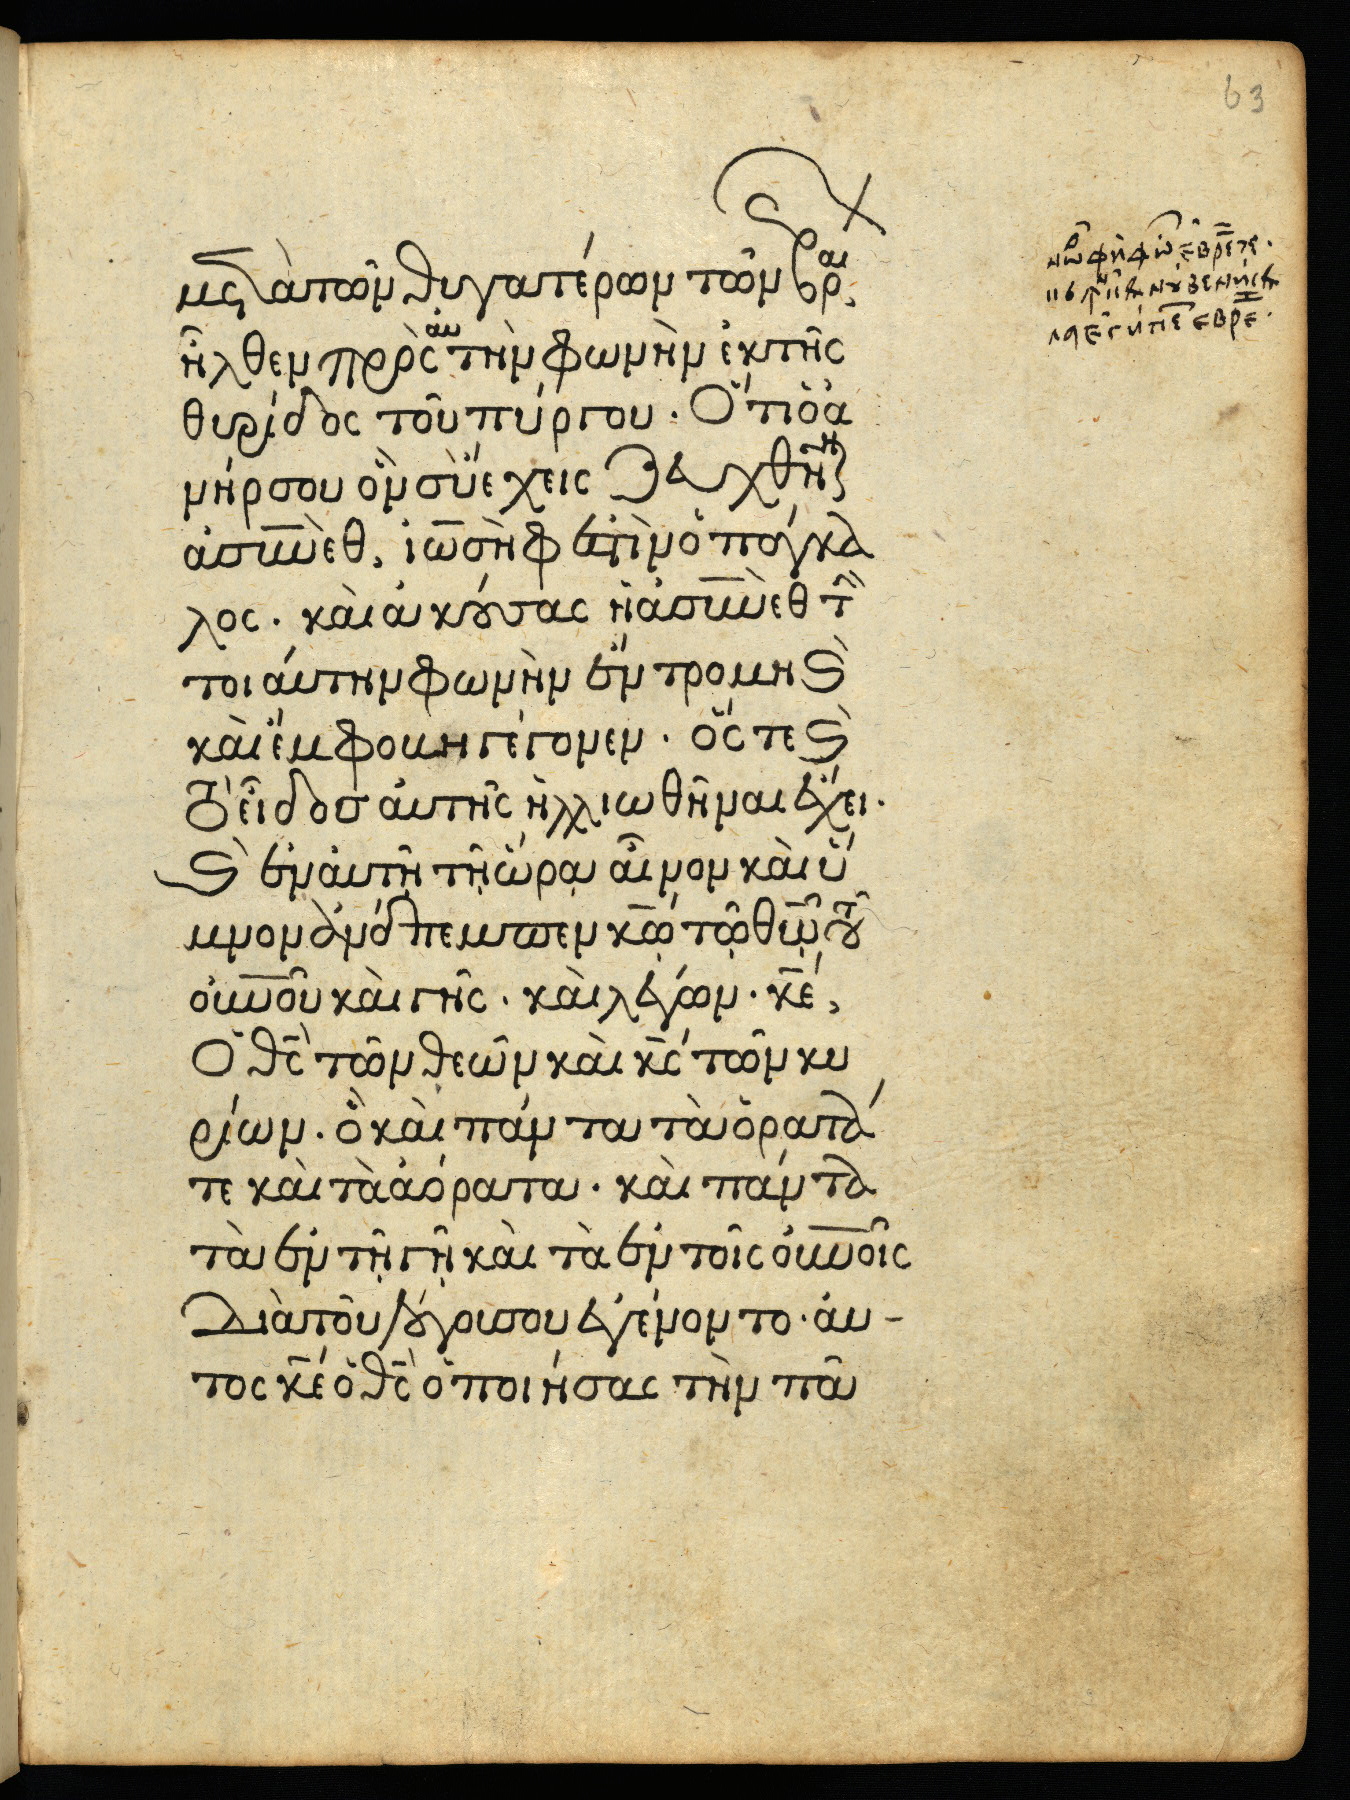 63
μετὰ τῶν θυγατέρων τῶν ἑβραι
ἦλθεν πρὸς αὐτὴν φωνὴν ἐκ τῆς
θυρίδος τοῦ πύργου. Ὅτι ὁ ἀ
νήρ σου ὃν σὺ ἔχεις
ἀσυνὲθ, ἰωσὴφ ἐστὶν ὁ πάγκα
λος. καὶ ἀκούσας ἡ ἀσυνὲθ τὴν
τοιαύτην φωνὴν ἔντρομη
καὶ ἔμφοβη γέγονεν. ὅστε
τὸ εἶδος αὐτῆς ἠλλιωθῆναι ἔχει.
ἐν αὐτῇ τῇ ὥρᾳ αἶνον καὶ ὕ
μνον ἀνέπεμπεν κῷ τῷ θῷ τοῦ
οὐνοῦ καὶ γῆς. καὶ λέγων. κέ,
Ὁ θς τῶν θεῶν καὶ κς τῶν κυ
ρίων. ὃ καὶ πάντα τὰ ὁρατά
τε καὶ τὰ ἀόρατα. καὶ πάντα
τὰ ἐν τῇ γῇ καὶ τὰ ἐν τοῖς οὐνοῖς
Διὰ τοῦ λόγοι σου ἐγένοντο. αὐ-
τος κέ ὁ θς ὁ ποιήσας τὴν πᾶ